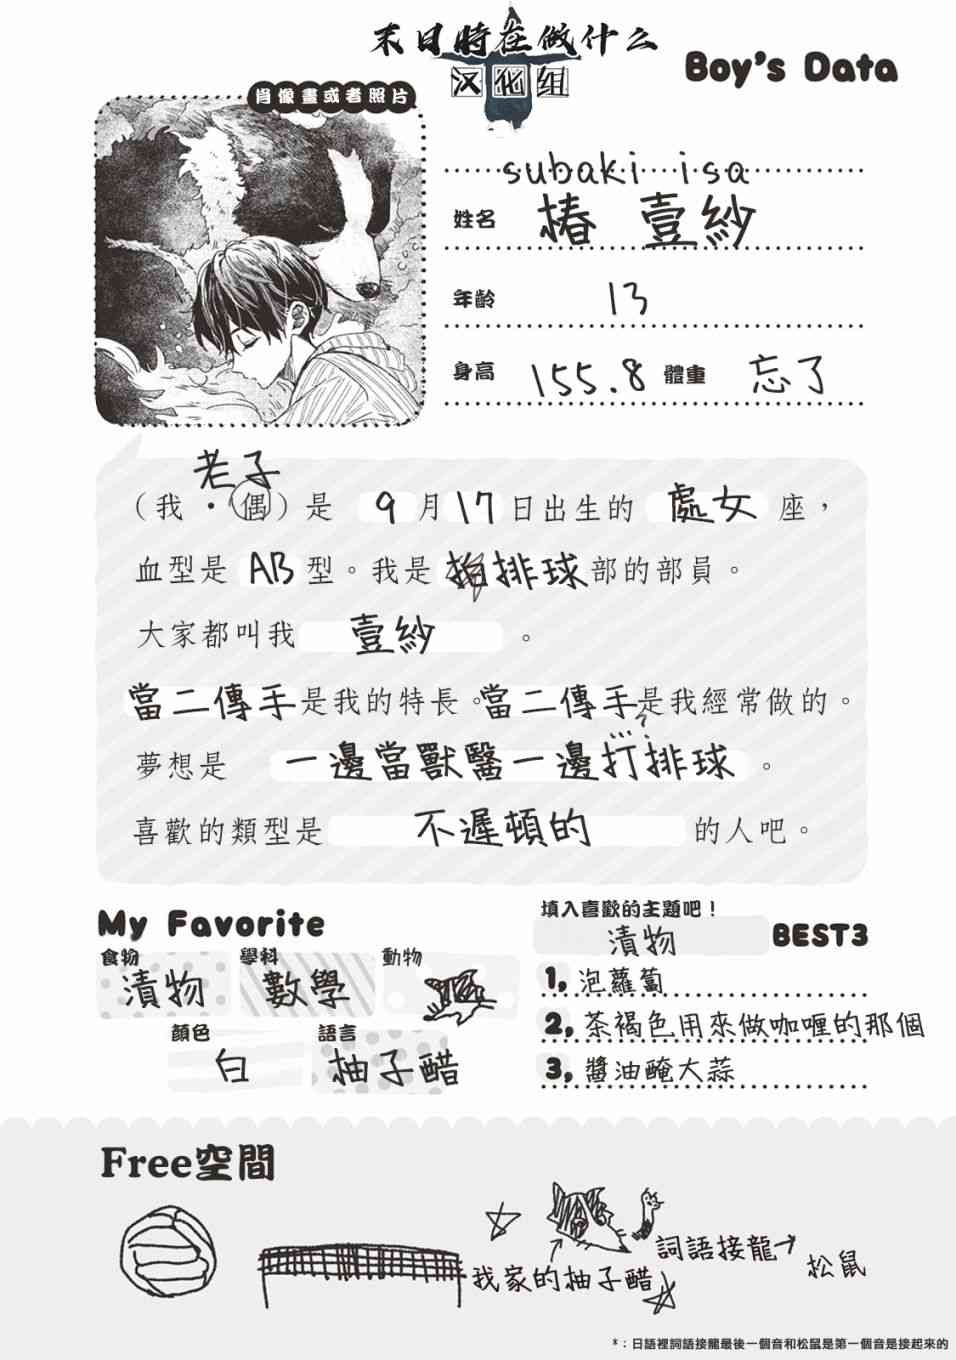 末日時在做什么
汉化组
Boy's Data
肖像畫或者照片
subaki isa
姓名 椿 壹紗
年齡 13
身高 155.8 體重 忘了
老子
（我・偶）是 9月17日出生的 處女 座，
血型是 AB 型。我是 排球部的部員。
大家都叫我 壹紗 。
當二傳手是我的特長。當二傳手是我經常做的。
夢想是 一邊當獸醫一邊打排球 。
喜歡的類型是 不遲頓的 的人吧。
My Favorite
食物 學科 動物
漬物 數學
顏色 語言
白 柚子醋
填入喜歡的主題吧！
漬物 BEST3
1, 泡蘿蔔
2, 茶褐色用來做咖喱的那個
3, 醬油醃大蒜
Free空間
詞語接龍→
松鼠
我家的柚子醋
*：日語裡詞語接龍最後一個音和松鼠是第一個音是接起來的